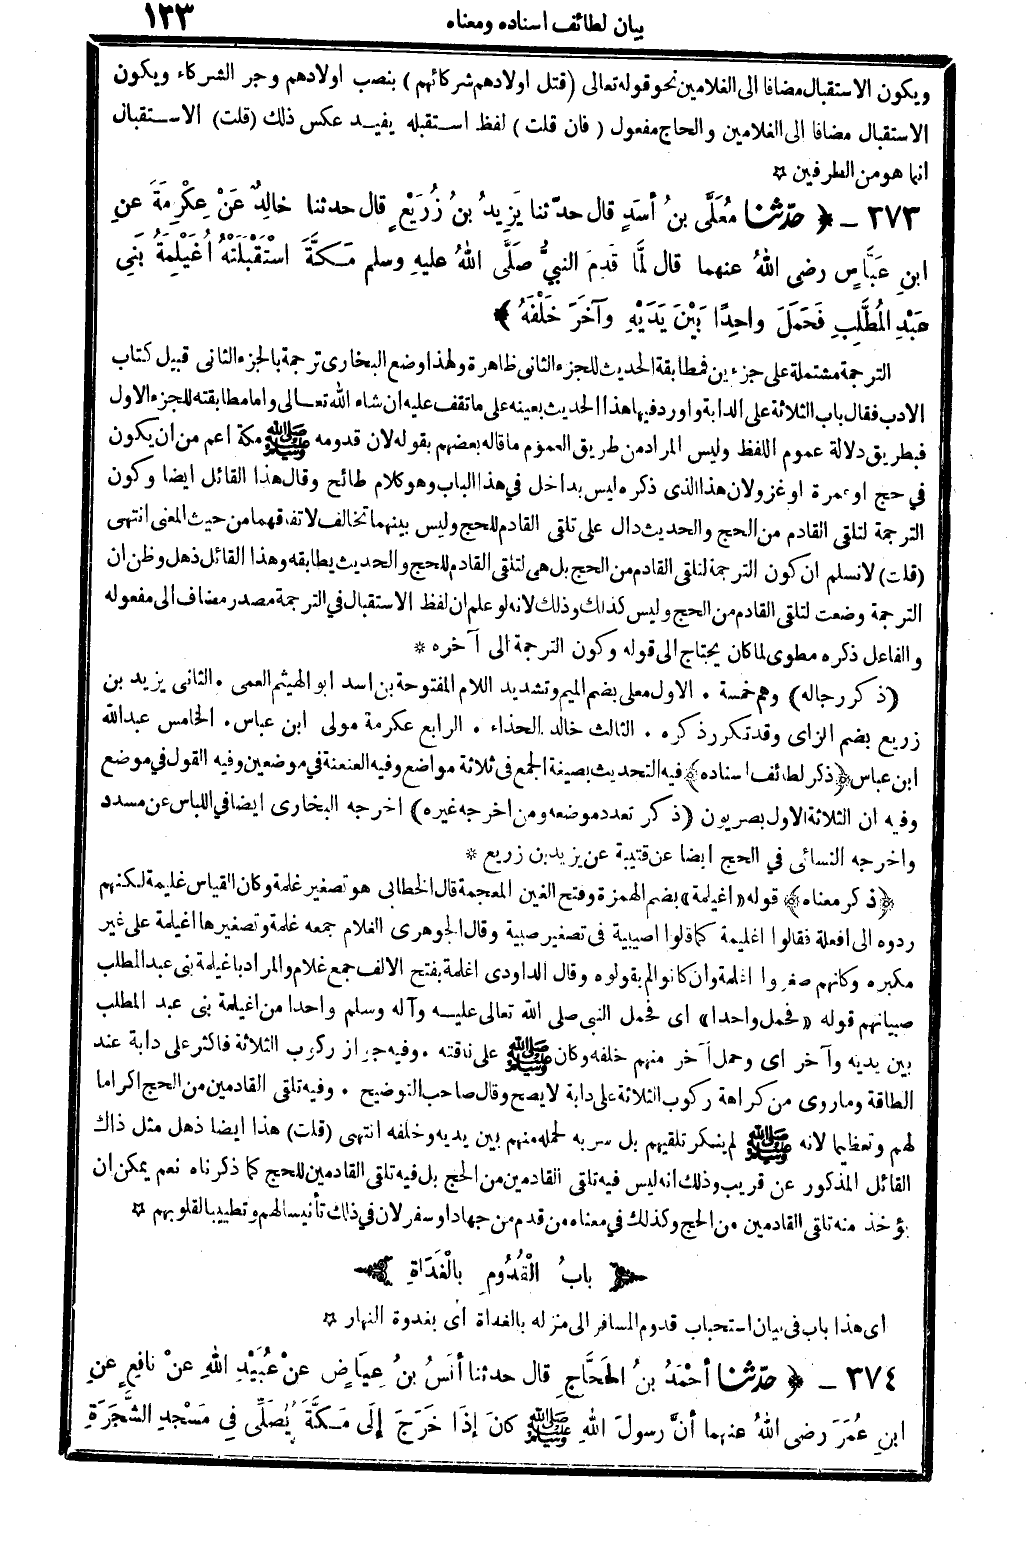 بيان لطائف اسناده ومعناه ١٣٣
ويكون الاستقبال مضافا الى الغلامين نحو قوله تعالى (قتل اولادهم شركائهم) بنصب اولادهم وجر الشركاء ويكون
الاستقبال مضافا الى الغلامين والحاج مفعول (فان قلت) لفظ استقبله يفيد عكس ذلك (قلت) الاستقبال
انما هو من الطرفين ☆
٣٧٣ ــ ﴿ حدّثنا مُعَلَّى بنُ أسَدٍ قال حدّثنا يَزِيدُ بنُ زُرَيْعٍ قال حدثنا خالِدٌ عَنْ عِكْرِمَةَ عنِ
ابنِ عَبَّاسٍ رضى اللهُ عنهما قال لمَّا قَدِمَ النبيُّ صَلَّى اللهُ عليهِ وسلم مَكَّةَ اسْتَقْبَلَتْهُ أُغَيْلِمَةُ بَنِى
عَبْدِ المُطَّلِبِ فَحَمَلَ واحِدًا بَيْنَ يَدَيْهِ وآخَرَ خَلْفَهُ ﴾
الترجمة مشتملة على جزءين فمطابقة الحديث للجزء الثانى ظاهرة ولهذا وضع البخارى ترجمة بالجزء الثانى قبيل كتاب
الادب فقال باب الثلاثة على الدابة واورد فيها هذا الحديث بعينه على ما تقف عليه ان شاء الله تعالى واما مطابقته للجزء الاول
فبطريق دلالة عموم اللفظ وليس المراد من طريق العموم ما قاله بعضهم بقوله لان قدومه ﷺ مكة اعم من ان يكون
في حج او عمرة او غزو لان هذا الذى ذكره ليس بداخل في هذا الباب وهو كلام طائح وقال هذا القائل ايضا وكون
الترجمة لتلقى القادم من الحج والحديث دال على تلقى القادم للحج وليس بينهما تخالف لاتفاقهما من حيث المعنى انتهى
(قلت) لانسلم ان كون الترجمة لتلقى القادم من الحج بل هى لتلقى القادم للحج والحديث يطابقه وهذا القائل ذهل وظن ان
الترجمة وضعت لتلقى القادم من الحج وليس كذلك وذلك لانه لو علم ان لفظ الاستقبال في الترجمة مصدر مضاف الى مفعوله
والفاعل ذكره مطوى لما كان يحتاج الى قوله وكون الترجمة الى آخره *
(ذكر رجاله) وهم خمسة . الاول معلى بضم الميم وتشديد اللام المفتوحة بن اسد ابو الهيثم العمى . الثانى يزيد بن
زريع بضم الزاى وقد تكرر ذكره . الثالث خالد الحذاء . الرابع عكرمة مولى ابن عباس . الخامس عبد الله
ابن عباس ﴿ذكر لطائف اسناده﴾ فيه التحديث بصيغة الجمع فى ثلاثة مواضع وفيه العنعنة في موضعين وفيه القول في موضع
وفيه ان الثلاثة الاول بصريون (ذكر تعدد موضعه ومن اخرجه غيره) اخرجه البخارى ايضا في اللباس عن مسدد
واخرجه النسائى في الحج ايضا عن قتيبة عن يزيد بن زريع *
﴿ذكر معناه﴾ قوله «اغيلمة» بضم الهمزة وفتح الغين المعجمة قال الخطابى هو تصغير غلمة وكان القياس غليمة لكنهم
ردوه الى افعلة فقالوا اغيلمة كما قالوا اصيبية فى تصغير صبية وقال الجوهرى الغلام جمعه غلمة وتصغيرها اغيلمة على غير
مكبره وكانهم صغروا اغلمة وان كانوا لم يقولوه وقال الداودى اغلمة بفتح الالف جمع غلام والمراد باغيلمة بنى عبد المطلب
صبيانهم قوله «فحمل واحدا» اى فحمل النبى صلى الله تعالى عليه وآله وسلم واحدا من اغيلمة بنى عبد المطلب
بين يديه وآخر اى وحمل آخر منهم خلفه وكان ﷺ على ناقته . وفيه جواز ركوب الثلاثة فاكثر على دابة عند
الطاقة وما روى من كراهة ركوب الثلاثة على دابة لا يصح وقال صاحب التوضيح . وفيه تلقى القادمين من الحج اكراما
لهم وتعظيما لانه ﷺ لم ينكر تلقيهم بل سر به لحمله منهم بين يديه وخلفه انتهى (قلت) هذا ايضا ذهل مثل ذاك
القائل المذكور عن قريب وذلك انه ليس فيه تلقى القادمين من الحج بل فيه تلقى القادمين للحج كما ذكرناه نعم يمكن ان
يؤخذ منه تلقى القادمين من الحج وكذلك في معناه من قدم من جهاد او سفر لان في ذلك تأنيسا لهم وتطييبا لقلوبهم ☆
بابُ الْقُدُومِ بِالْغَدَاةِ
اى هذا باب فى بيان استحباب قدوم المسافر الى منزله بالغداة اى بغدوة النهار ☆
٣٧٤ ــ ﴿ حدّثنا أحْمَدُ بنُ الحَجَّاجِ قال حدثنا أنَسُ بنُ عِيَاضٍ عنْ عُبَيْدِ اللهِ عنْ نافِعٍ عنِ
ابنِ عُمَرَ رضى اللهُ عنهما أنَّ رسولَ اللهِ ﷺ كانَ إذَا خَرَجَ إلَى مَكَّةَ يُصَلِّى فِى مَسْجِدِ الشَّجَرَةِ